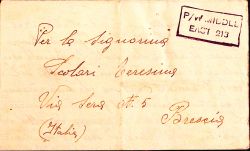 P/W MIDDLE
EAST 213
Per la Signorina
Scolari Teresina
Via Sera N. 5
Brescia
(Italia)